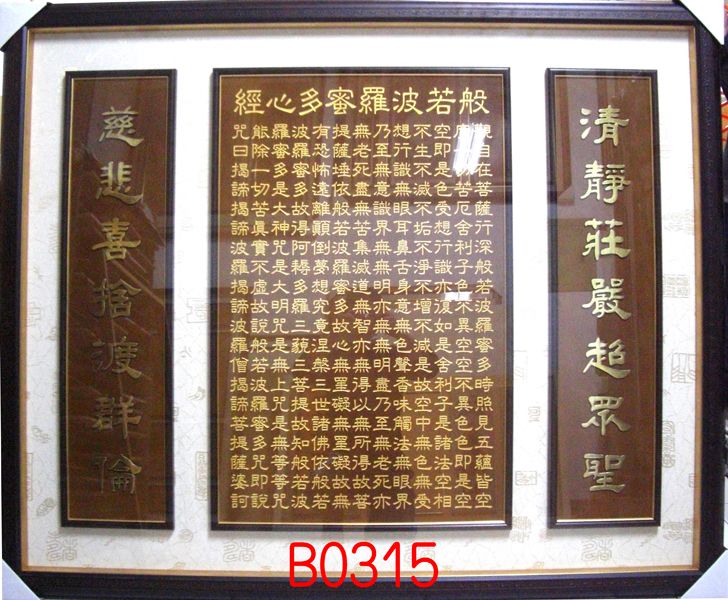 清靜莊嚴超眾聖
般若波羅蜜多心經
觀自在菩薩行深般若波羅蜜多時照見五蘊皆空
度一切苦厄舍利子色不異空空不異色色即是空
空即是色受想行識亦復如是舍利子是諸法空相
不生不滅不垢不淨不增不減是故空中無色無受
想行識無眼耳鼻舌身意無色聲香味觸法無眼界
乃至無意識界無無明亦無無明盡乃至無老死亦
無老死盡無苦集滅道無智亦無得以無所得故菩
提薩埵依般若波羅蜜多故心無罣礙無罣礙故無
有恐怖遠離顛倒夢想究竟涅槃三世諸佛依般若
波羅蜜多故得阿耨多羅三藐三菩提故知般若波
羅蜜多是大神咒是大明咒是無上咒是無等等咒
能除一切苦真實不虛故說般若波羅蜜多咒即說
咒曰揭諦揭諦波羅揭諦波羅僧揭諦菩提薩婆訶
慈悲喜捨渡群倫
B0315